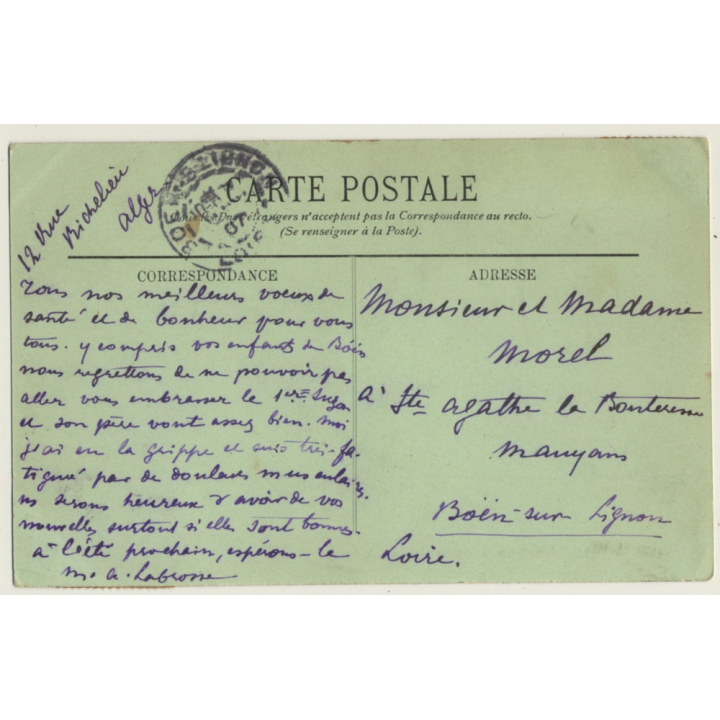 12 Rue
Richelieu
Alger
BOEN-S-LIGNON
07
LOIRE
CARTE POSTALE
étrangers n'acceptent pas la Correspondance au recto.
(Se renseigner à la Poste).
CORRESPONDANCE
Tous nos meilleurs voeux de
santé et de bonheur pour vous
tous. y compris vos enfants de Böën
nous regrettons de ne pouvoir pas
aller vous embrasser le 1er. Suzon
et son père vont assez bien. moi
j'ai eu la grippe et suis très fa-
tigué par de douleurs musculaires.
ns serons heureux d'avoir de vos
nouvelles surtout si elles sont bonnes.
à l'été prochain, espérons-le
m. a. Labrosse
ADRESSE
Monsieur et Madame
Morel
à Ste agathe la Bouteresse
Böën-sur-Lignon
Loire.